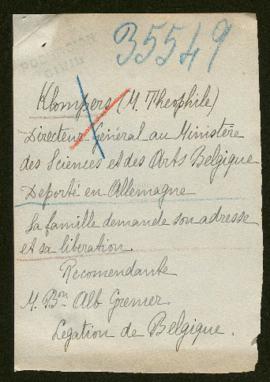 35549
POBLACIÓN
CIVIL
Klompers (M. Theophile)
Directeur Général au Ministère
des Sciences et des Arts Belgique
Deporté en Allemagne
La famille demande son adresse
et sa liberation.
Recomendante
M. Bon Alb Grenier
Legation de Belgique.